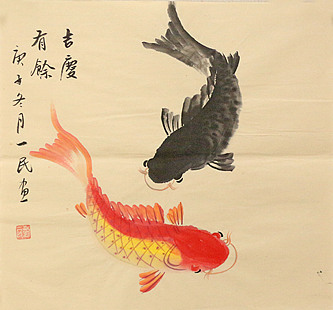 吉慶
有餘
庚子冬月一民畫